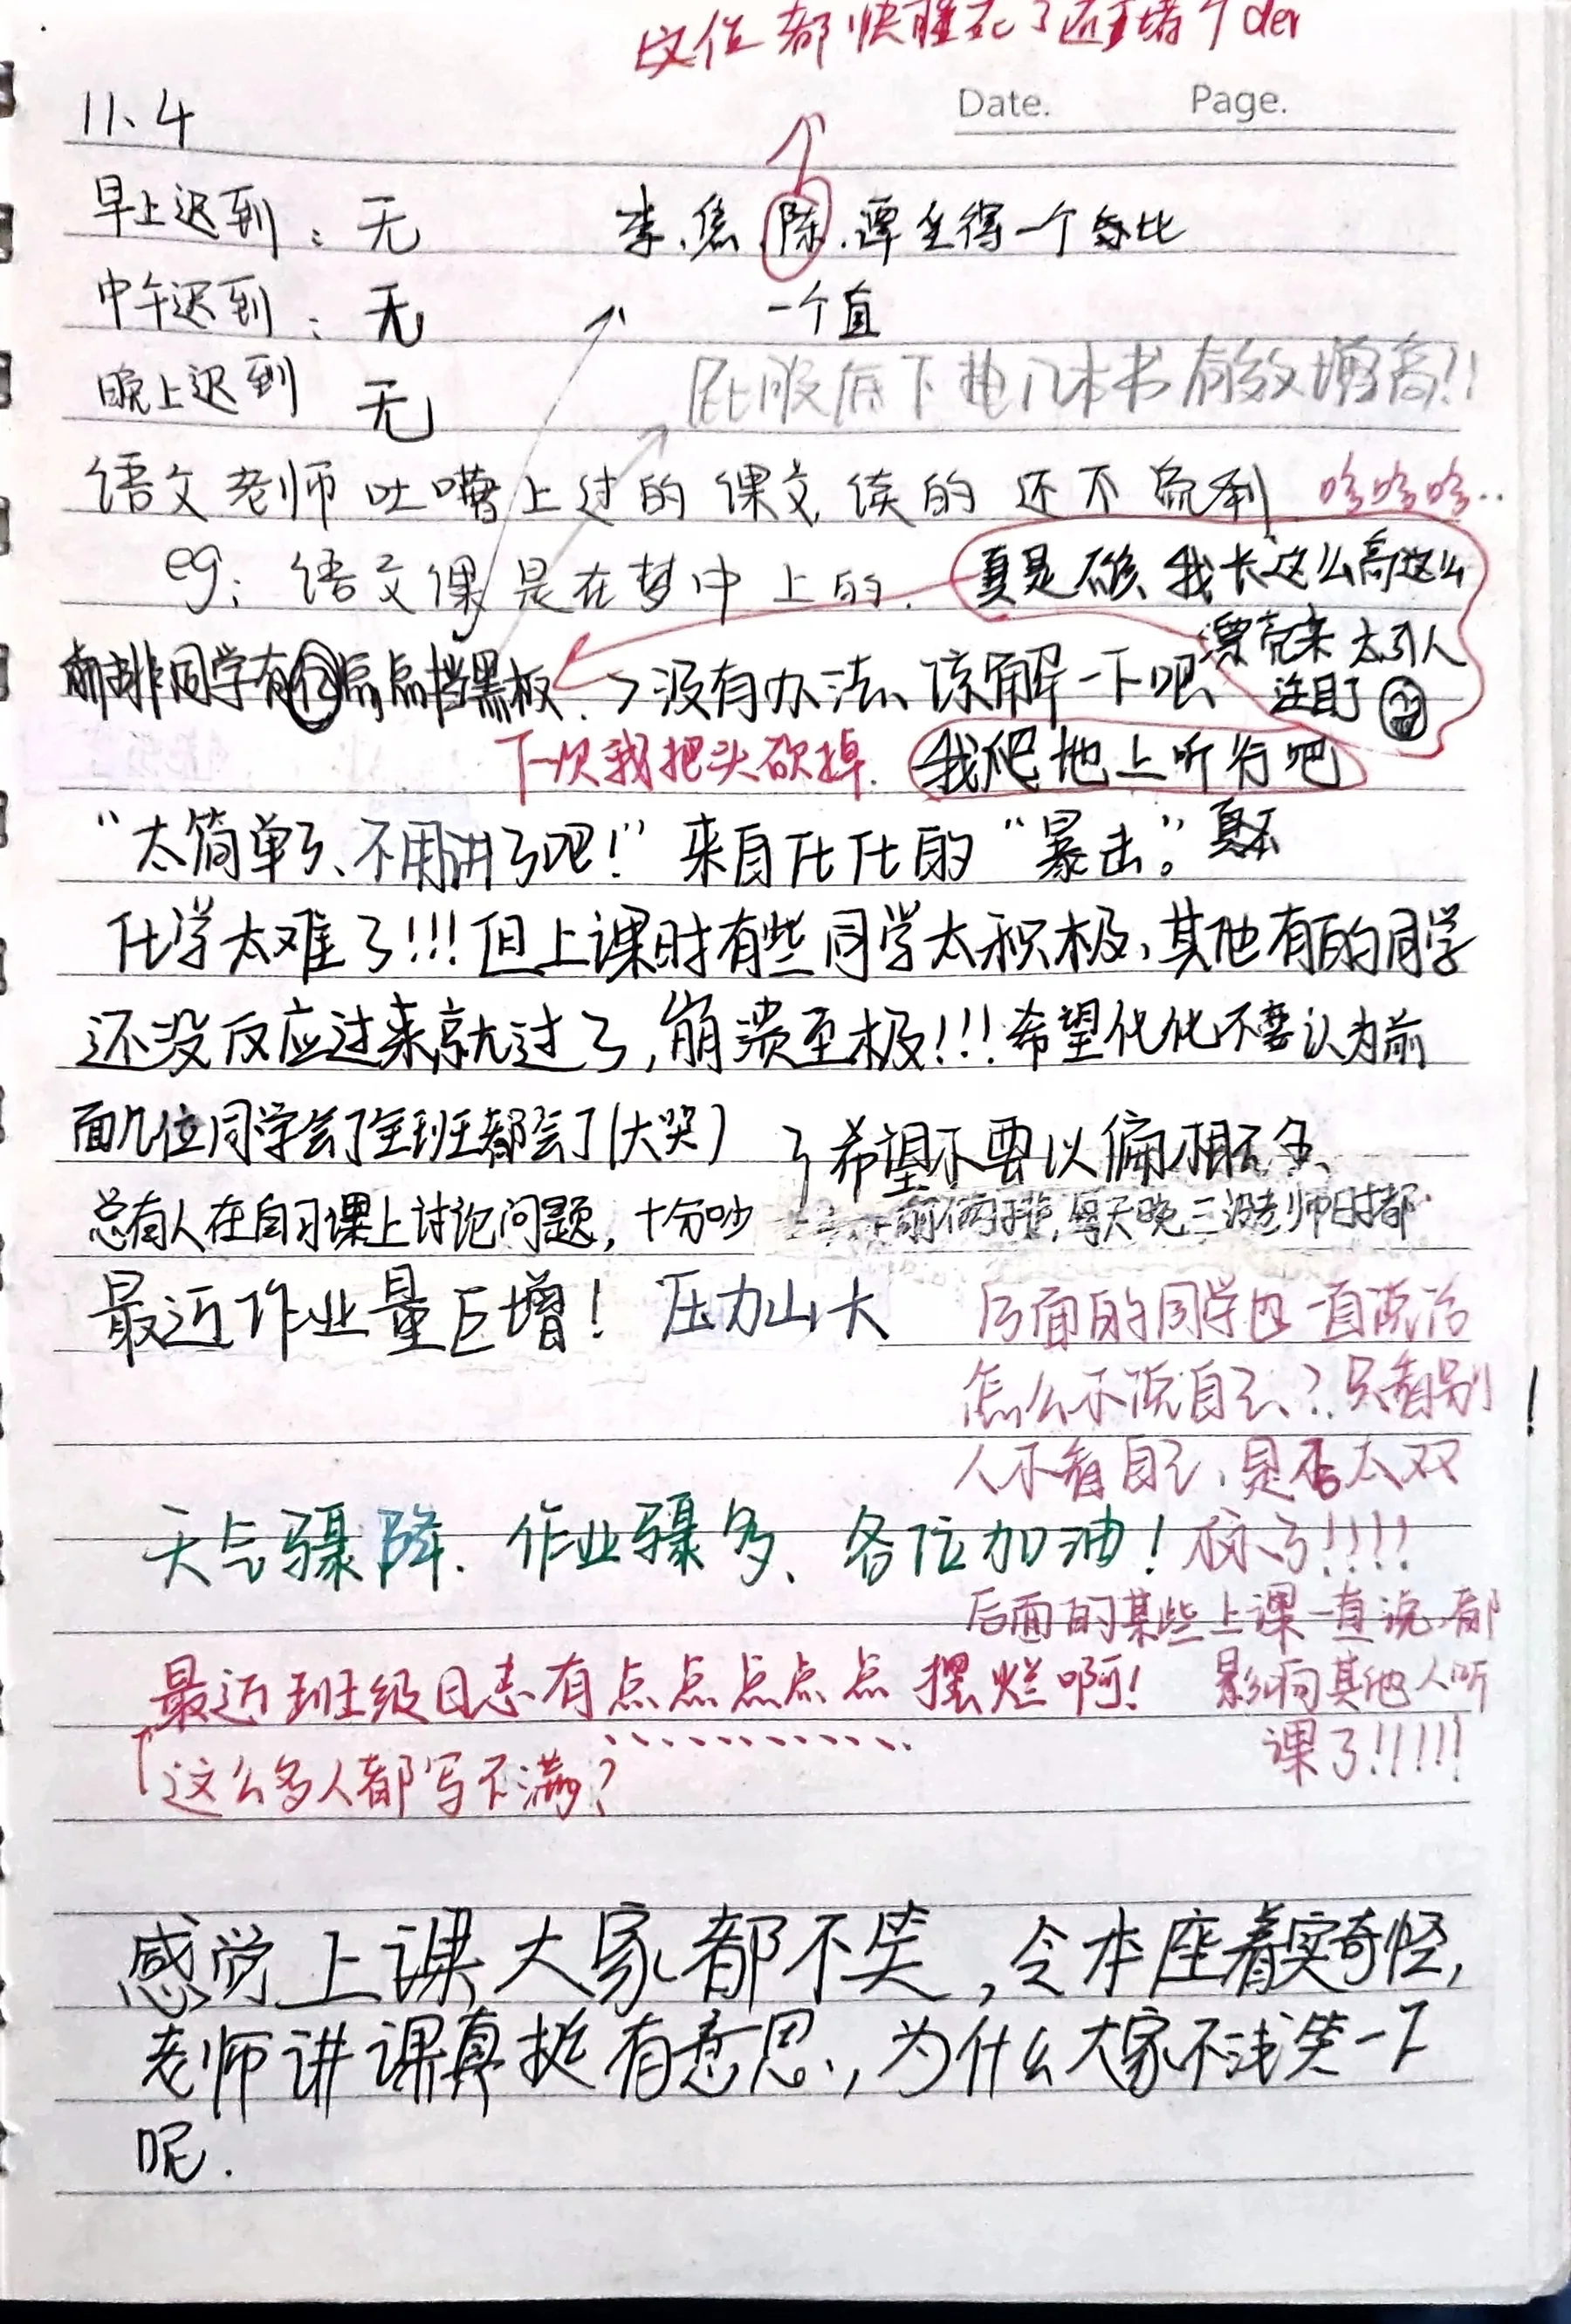 这位都快睡死了还直堵个der
Date. Page.
11.4
早上迟到：无 李、焦、陈、谭坐得一个个比
中午迟到：无 一个直
晚上迟到 无 屁股底下垫几本书有效增高!!
语文老师吐嘈上过的课文读的还不流利 哈哈哈..
eg：语文课是在梦中上的. 真是 我长这么高这么
漂亮来太引人
注目了
前排同学有亿点点挡黑板. →没有办法、谅解一下吧
下次我把头砍掉. 我爬地上听行吧
“太简单了、不用讲了吧!”来自化化的“暴击”。
化学太难了!!!但上课时有些同学太积极,其他有的同学
还没反应过来就过了,崩溃至极!!!希望化化不要认为前
面几位同学会了全班都会了(大哭) 希望不要以偏概全、
总有人在自习课上讨论问题,十分吵 前俩排,每天晚三没老师时都
最近作业量巨增! 压力山大 后面的同学也一直说话
怎么不说自己?只看别
人不看自己,是否太双
!
天气骤降.作业骤多、各位加油! 标了!!!!
后面的某些上课一直说,都
最近班级日志有点点点点点摆烂啊! 影响其他人听
课了!!!!!
「这么多人都写不满?
感觉上课大家都不笑,令本座着实奇怪,
老师讲课真挺有意思,为什么大家不浅笑一下
呢.